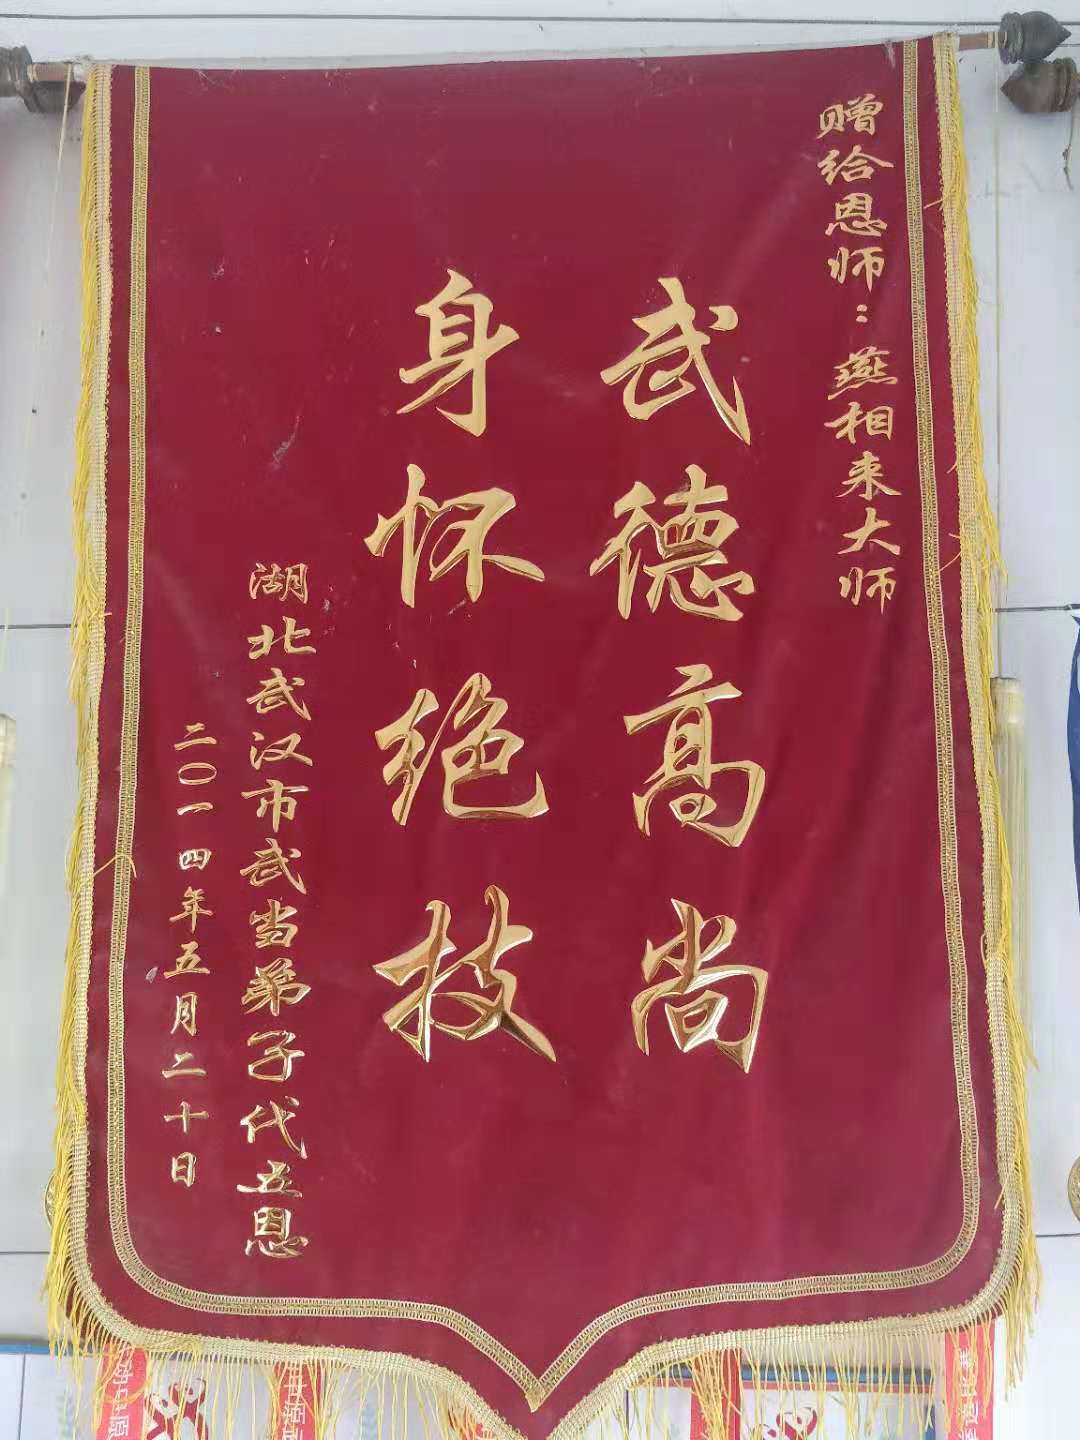 赠给恩师：燕相来大师
武德高尚
身怀绝技
湖北武汉市武当弟子代立恩
二〇一四年五月二十日